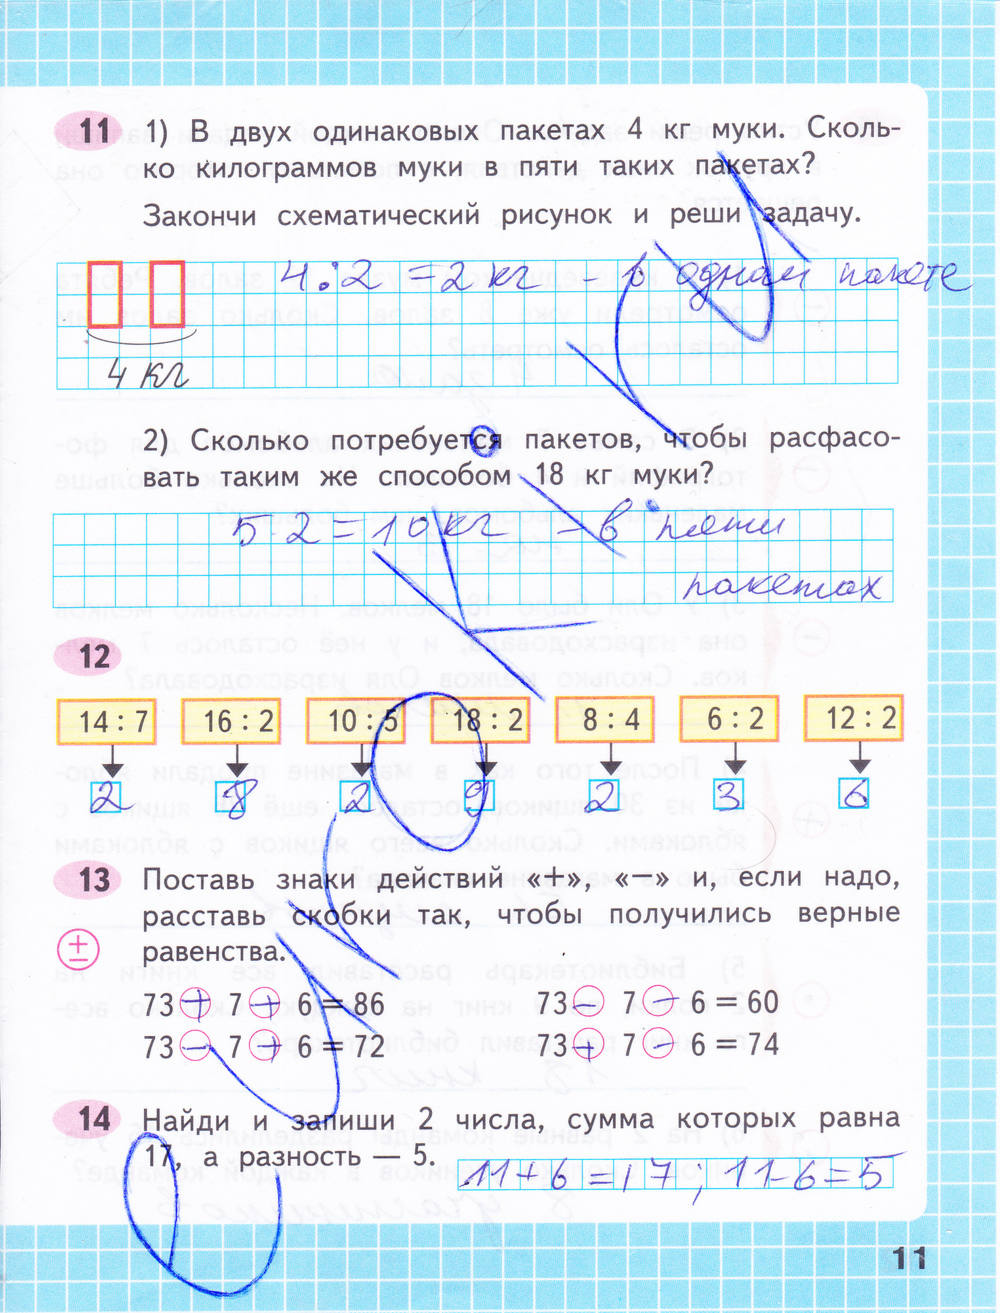 11 1) В двух одинаковых пакетах 4 кг муки. Сколь-
ко килограммов муки в пяти таких пакетах?
Закончи схематический рисунок и реши задачу.
4:2=2кг - в одном пакете
4 кг
2) Сколько потребуется пакетов, чтобы расфасо-
вать таким же способом 18 кг муки?
5·2=10кг - в пяти
пакетах
12
14:7 16:2 10:5 18:2 8:4 6:2 12:2
2 8 2 9 2 3 6
13 Поставь знаки действий «+», «−» и, если надо,
расставь скобки так, чтобы получились верные
± равенства.
73 + 7 + 6 = 86 73 − 7 − 6 = 60
73 − 7 + 6 = 72 73 + 7 − 6 = 74
14 Найди и запиши 2 числа, сумма которых равна
17, а разность — 5. 11+6=17, 11-6=5
11